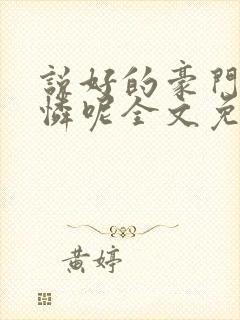 説好的豪門
憐呢全文免
黃婷